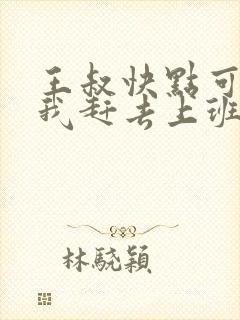 王叔快點可
我赶去上班
林驍穎